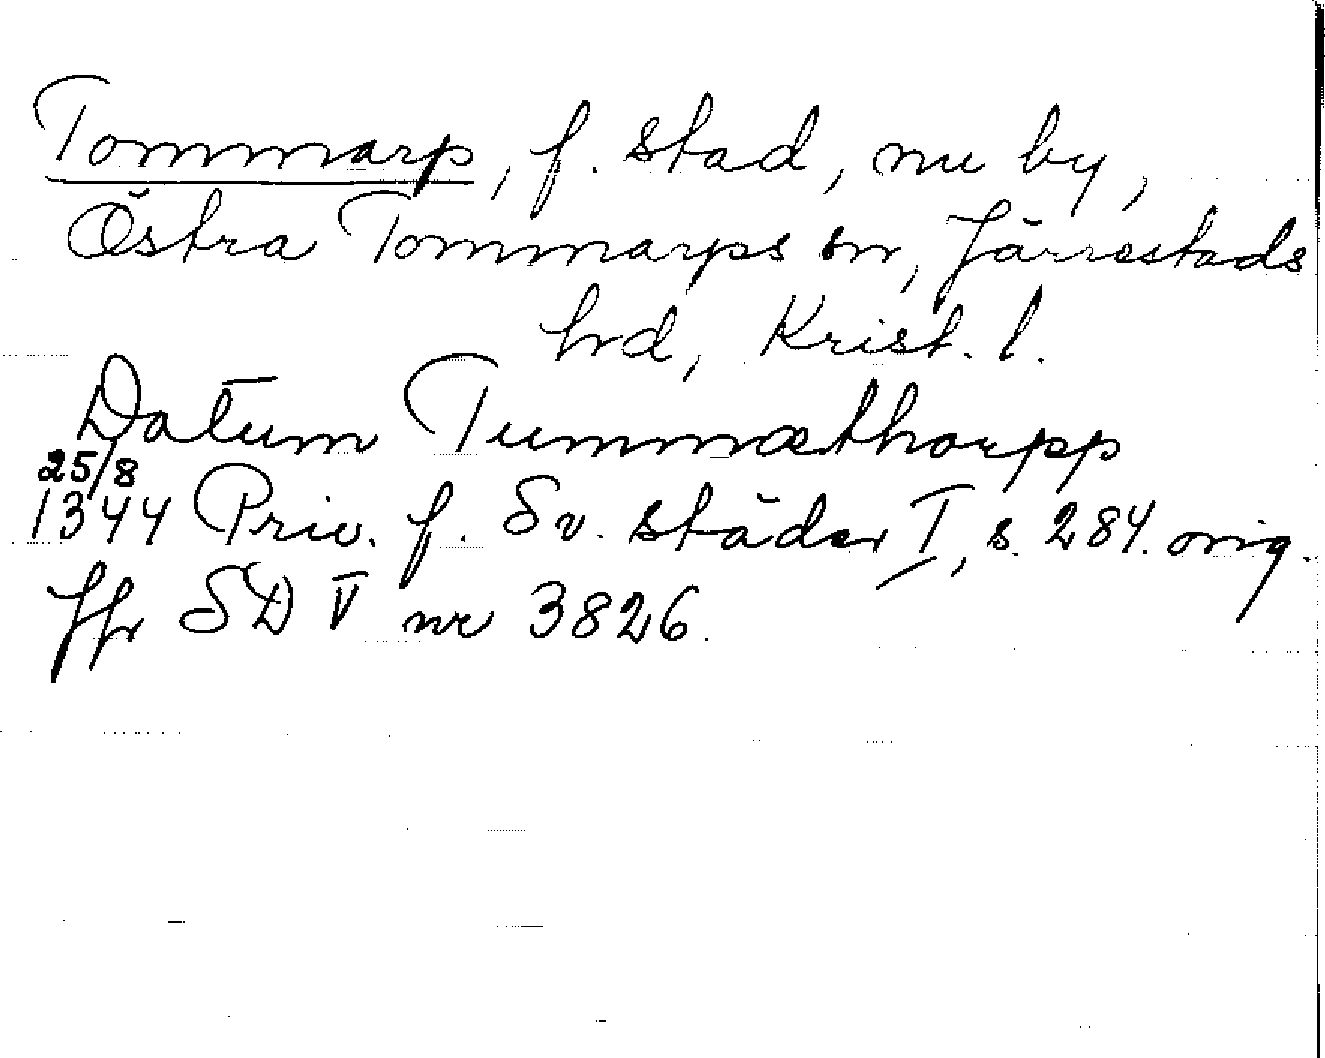 Tommarp, f. stad, nu by,
Östra Tommarps sn, Järrestads
hrd, Krist. l.
Datum Tummæthorpp
25/8
1344 Priv. f. Sv. städer I, s. 284. orig.
Jfr SD V nr 3826.